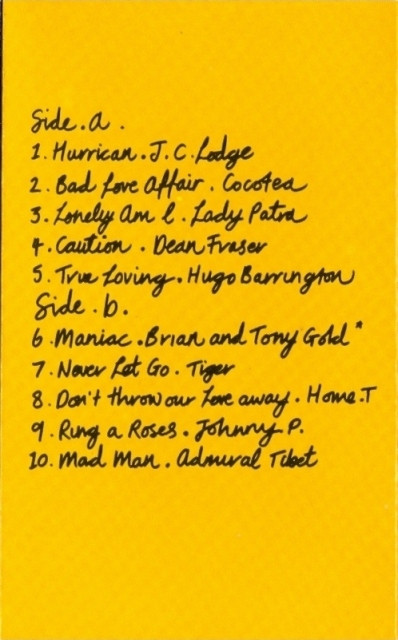 Side . a .
1. Hurrican . J. C. Lodge
2. Bad Love Affair . Cocotea
3. Lonely Am I . Lady Patra
4. Caution . Dean Fraser
5. True Loving . Hugo Barrington
Side . b .
6. Maniac . Brian and Tony Gold*
7. Never Let Go . Tiger
8. Don't throw our Love away . Home.T
9. Ring a Roses . Johnny P.
10. Mad Man . Admiral Tibet